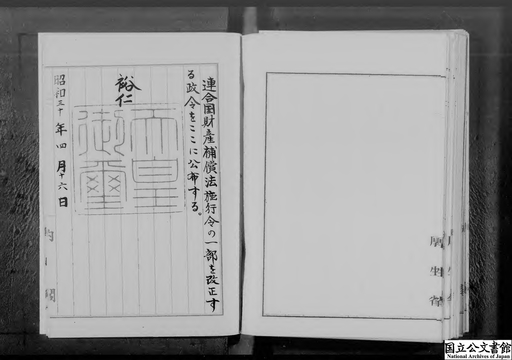 連合国財産補償法施行令の一部を改正す
る政令をここに公布する。
裕仁
天皇
御璽
昭和三十年四月十六日
内閣
厚生省
国立公文書館
National Archives of Japan